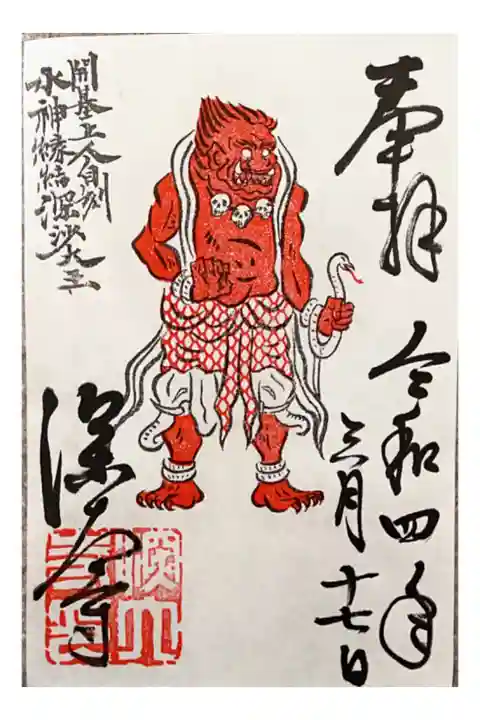 奉拝
令和四年
三月十七日
開基上人自刻
水神縁結深沙大王
深大寺